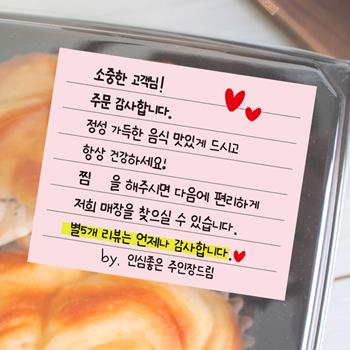 소중한 고객님!
주문 감사합니다.
정성 가득한 음식 맛있게 드시고
항상 건강하세요!
찜 을 해주시면 다음에 편리하게
저희 매장을 찾으실 수 있습니다.
별5개 리뷰는 언제나 감사합니다.
by. 인심좋은 주인장드림